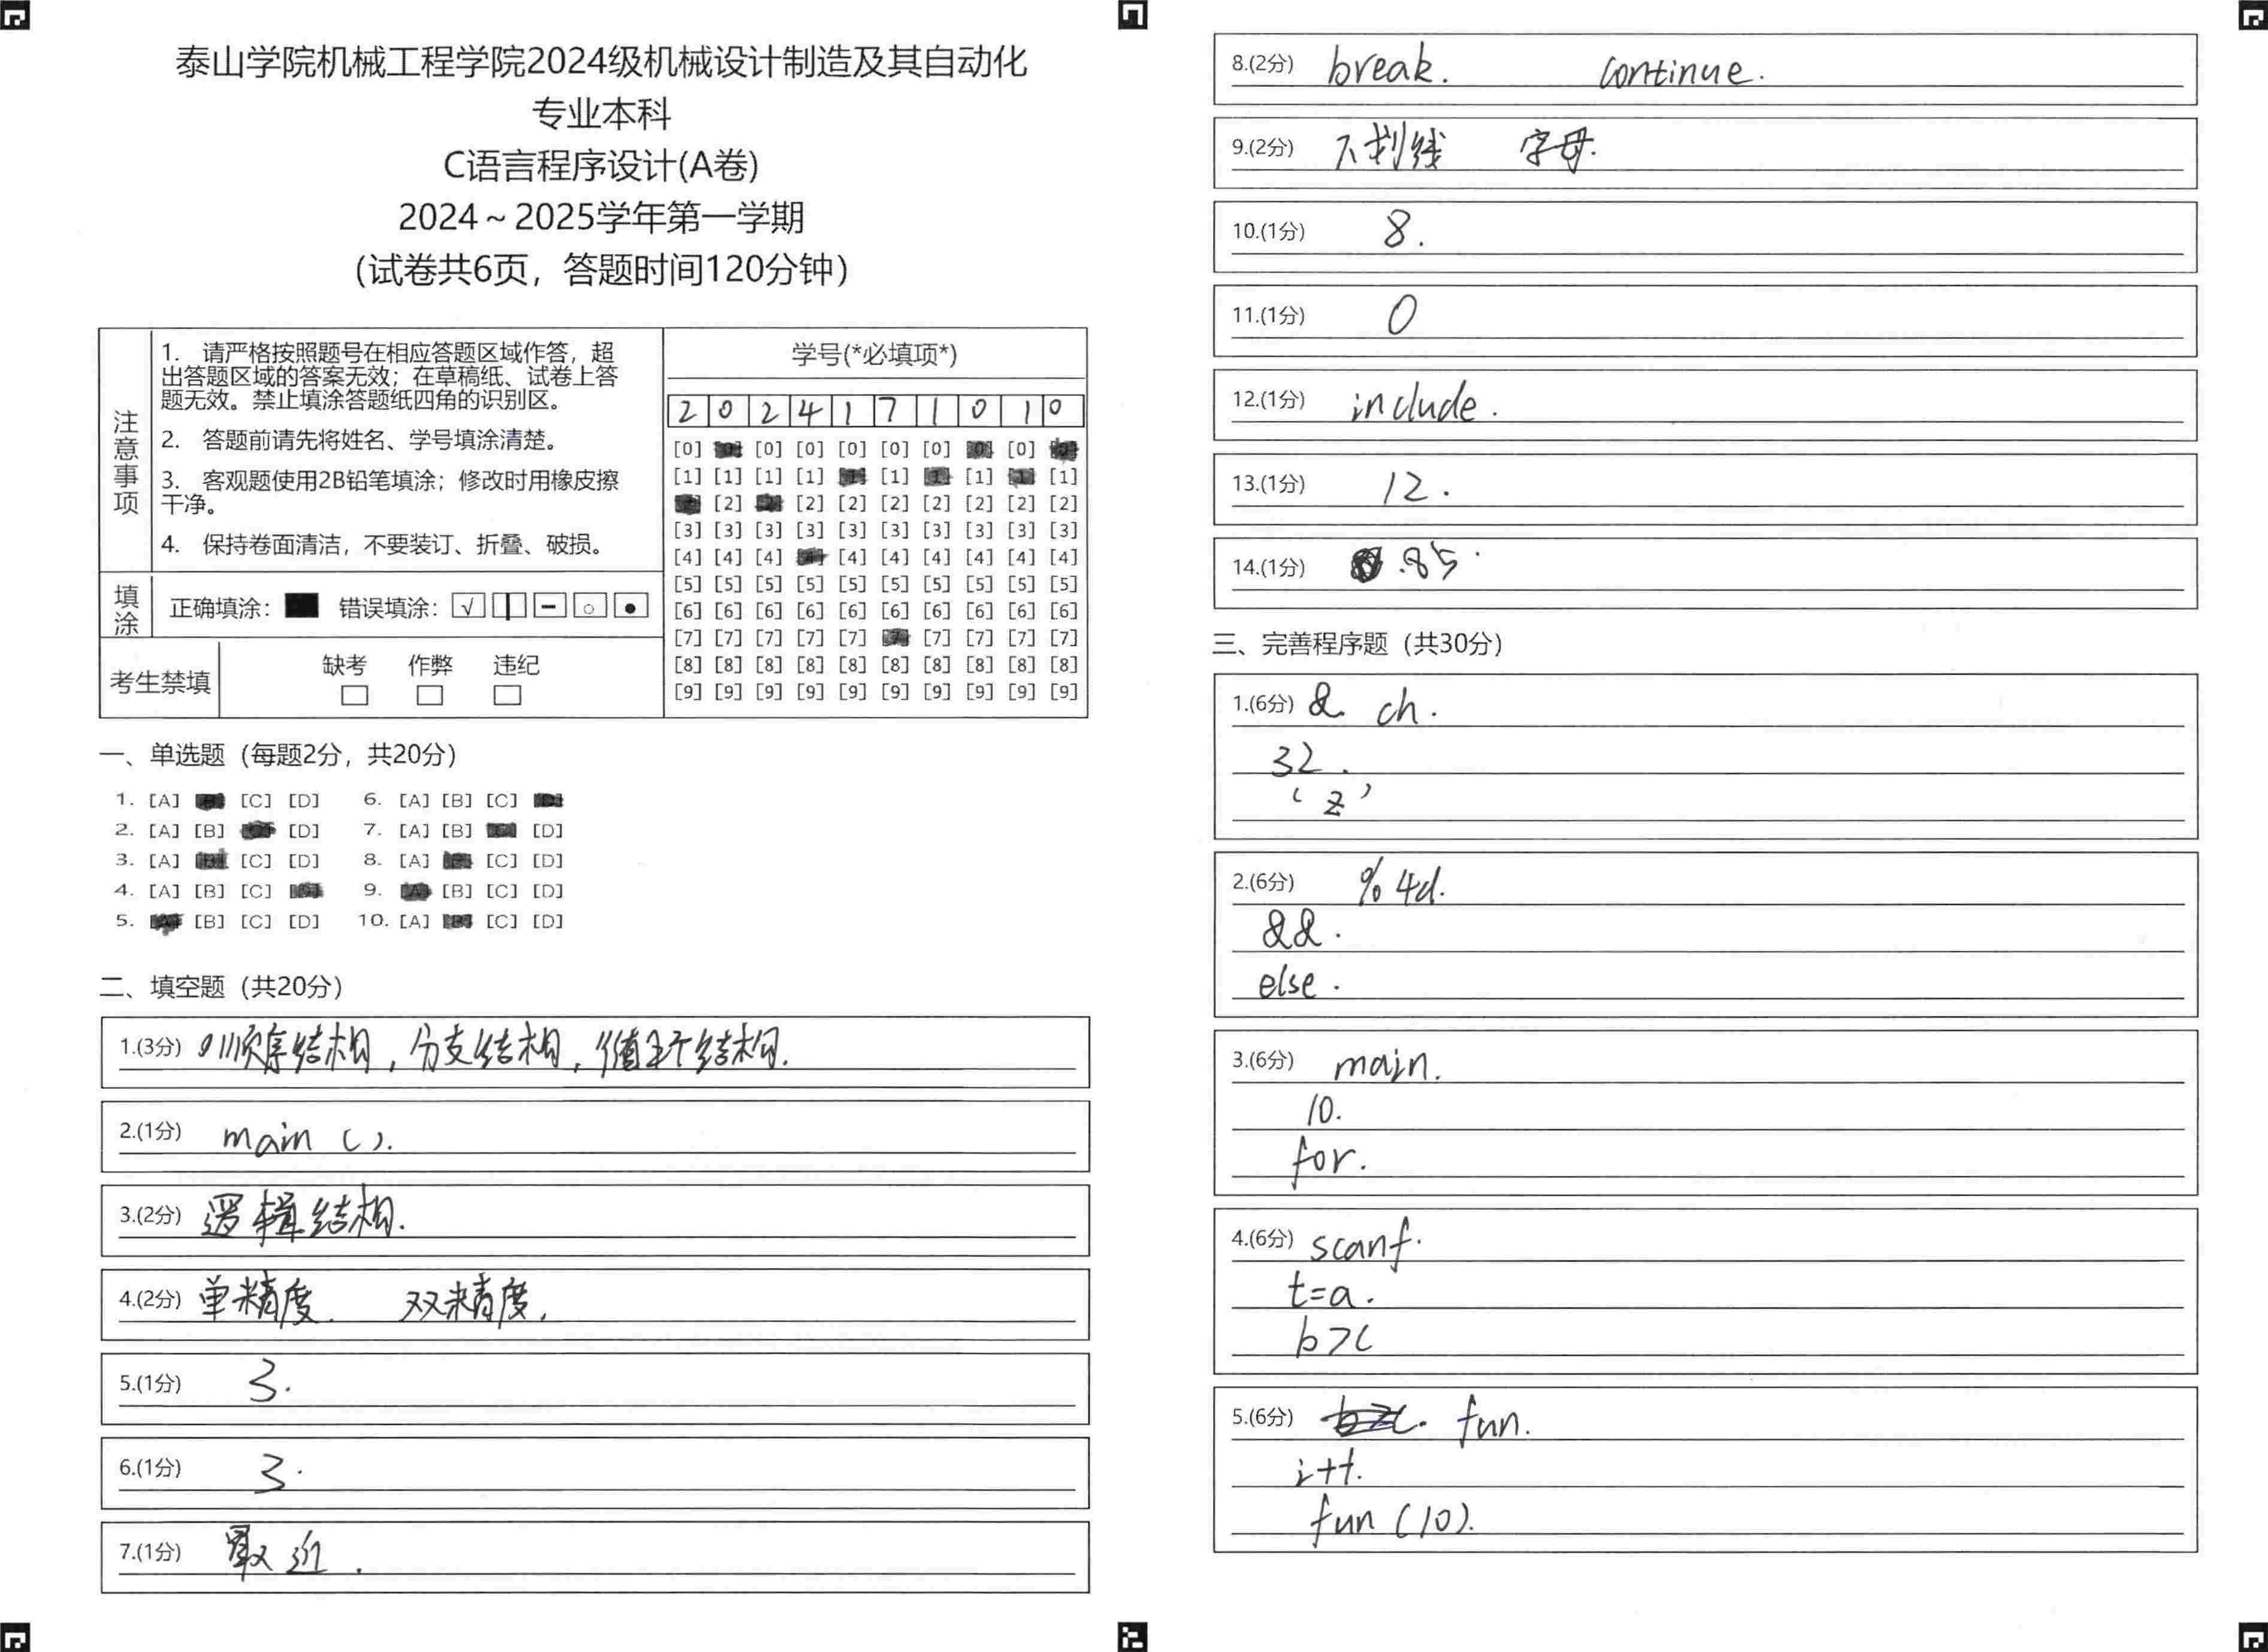 泰山学院机械工程学院2024级机械设计制造及其自动化
专业本科
C语言程序设计(A卷)
2024～2025学年第一学期
(试卷共6页，答题时间120分钟)
注意事项
1. 请严格按照题号在相应答题区域作答，超
出答题区域的答案无效；在草稿纸、试卷上答
题无效。禁止填涂答题纸四角的识别区。
2. 答题前请先将姓名、学号填涂清楚。
3. 客观题使用2B铅笔填涂；修改时用橡皮擦
干净。
4. 保持卷面清洁，不要装订、折叠、破损。
填涂
正确填涂： 错误填涂： √
考生禁填
缺考 作弊 违纪
学号(*必填项*)
2 0 2 4 1 7 1 0 1 0
[0] [0] [0] [0] [0] [0] [0] [0] [0] [0]
[1] [1] [1] [1] [1] [1] [1] [1] [1] [1]
[2] [2] [2] [2] [2] [2] [2] [2] [2] [2]
[3] [3] [3] [3] [3] [3] [3] [3] [3] [3]
[4] [4] [4] [4] [4] [4] [4] [4] [4] [4]
[5] [5] [5] [5] [5] [5] [5] [5] [5] [5]
[6] [6] [6] [6] [6] [6] [6] [6] [6] [6]
[7] [7] [7] [7] [7] [7] [7] [7] [7] [7]
[8] [8] [8] [8] [8] [8] [8] [8] [8] [8]
[9] [9] [9] [9] [9] [9] [9] [9] [9] [9]
一、单选题（每题2分，共20分）
1. [A] [B] [C] [D] 6. [A] [B] [C] [D]
2. [A] [B] [C] [D] 7. [A] [B] [C] [D]
3. [A] [B] [C] [D] 8. [A] [B] [C] [D]
4. [A] [B] [C] [D] 9. [A] [B] [C] [D]
5. [A] [B] [C] [D] 10. [A] [B] [C] [D]
二、填空题（共20分）
1.(3分) 顺序结构，分支结构，结构.
2.(1分) main ( ).
3.(2分) 逻辑结构.
4.(2分) 单精度. 双精度.
5.(1分) 3.
6.(1分) 3.
7.(1分) 最近.
8.(2分) break. continue.
9.(2分) 下划线 字母.
10.(1分) 8.
11.(1分) 0
12.(1分) include.
13.(1分) 12.
14.(1分) .85.
三、完善程序题（共30分）
1.(6分) & ch.
32.
'z'
2.(6分) %4d.
&&.
else.
3.(6分) main.
10.
for.
4.(6分) scanf.
t=a.
b>c
5.(6分) fun.
i++.
fun (10).